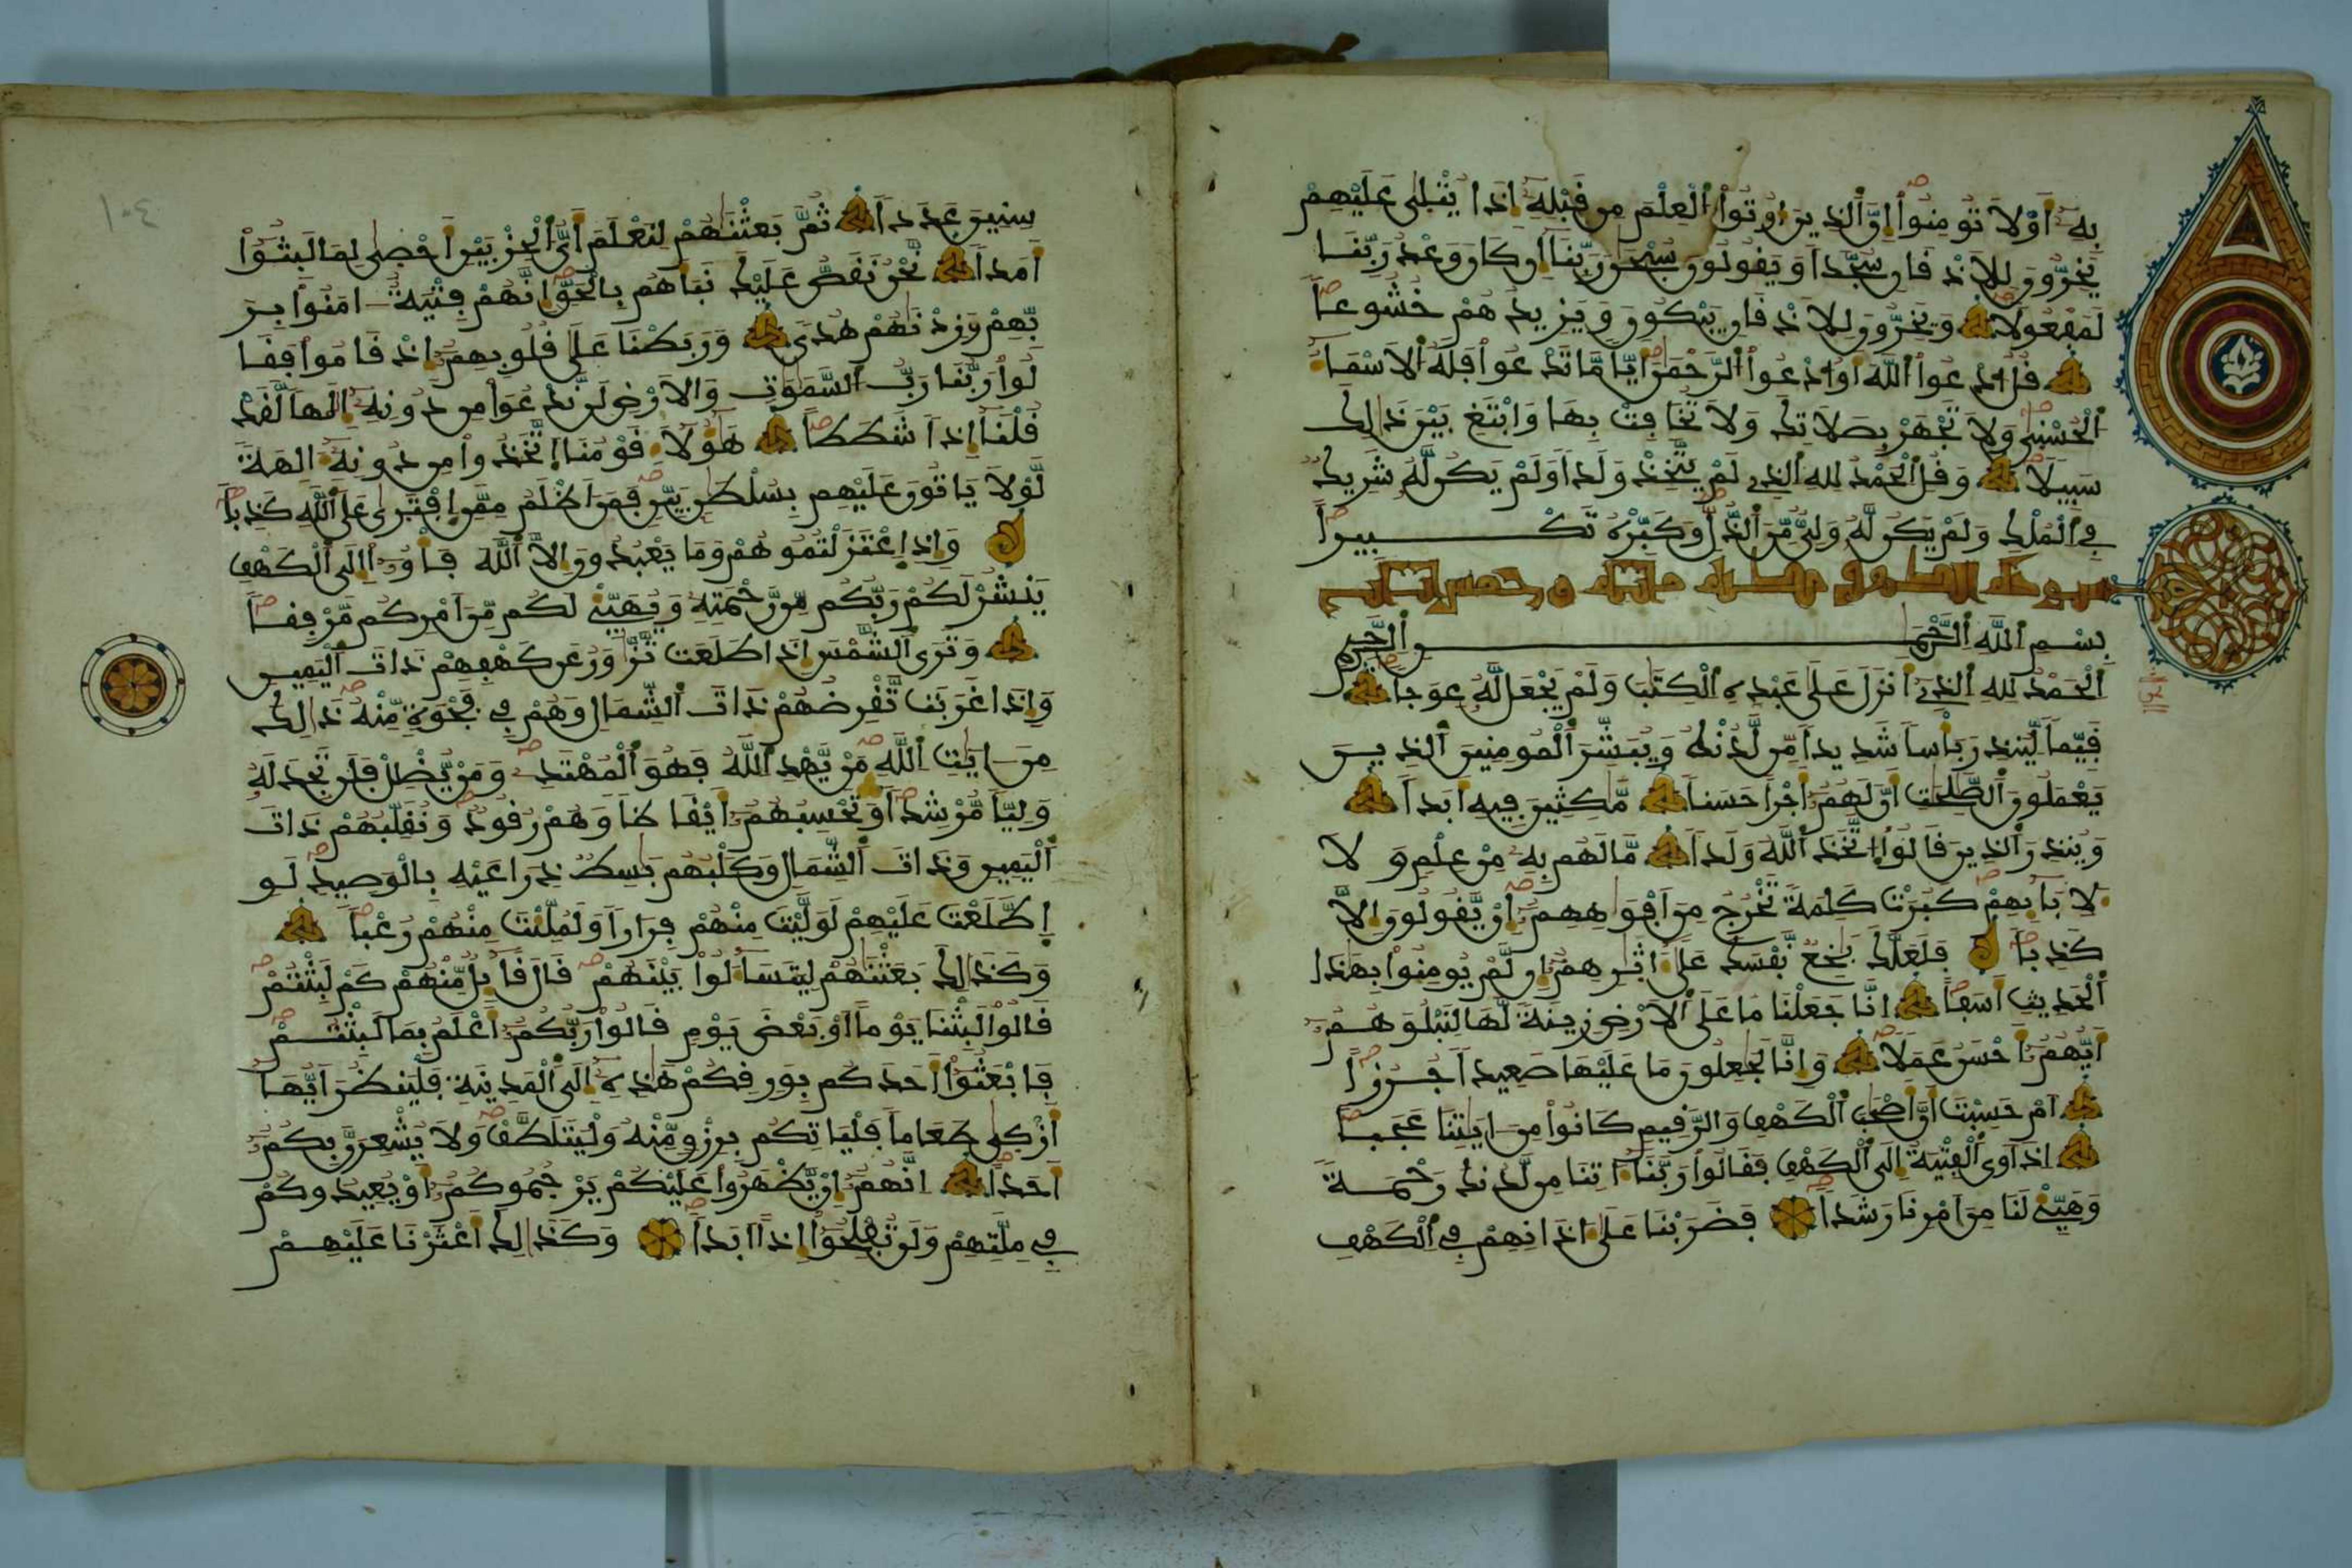 بِهِۦٓ أَوْ لَا تُومِنُوٓاْ إِنَّ ٱلذِينَ أُوتُواْ ٱلْعِلْمَ مِن قَبْلِهِۦٓ إِذَا يُتْلَىٰ عَلَيْهِمْ
يَخِرُّونَ لِلَاذْقَانِ سُجَّداً وَيَقُولُونَ سُبْحَٰنَ رَبِّنَآ إِن كَانَ وَعْدُ رَبِّنَا
لَمَفْعُولاً وَيَخِرُّونَ لِلَاذْقَانِ يَبْكُونَ وَيَزِيدُهُمْ خُشُوعاً
قُلُ ٱدْعُواْ ٱللَّهَ أَوُ ٱدْعُواْ ٱلرَّحْمَٰنَ أَيّاً مَّا تَدْعُواْ فَلَهُ ٱلَاسْمَآءُ
ٱلْحُسْنَىٰ وَلَا تَجْهَرْ بِصَلَاتِكَ وَلَا تُخَافِتْ بِهَا وَابْتَغِ بَيْنَ ذَٰلِكَ
سَبِيلاً وَقُلِ ٱلْحَمْدُ لِلهِ ٱلذِے لَمْ يَتَّخِذْ وَلَداً وَلَمْ يَكُن لَّهُۥ شَرِيكٌ
فِے ٱلْمُلْكِ وَلَمْ يَكُن لَّهُۥ وَلِىٌّ مِّنَ ٱلذُّلِّ وَكَبِّرْهُ تَكْبِيراً
سورة الكهف مكية مائة وخمس آيات
بِسْمِ ٱللَّهِ ٱلرَّحْمَٰنِ ٱلرَّحِيمِ
ٱلْحَمْدُ لِلهِ ٱلذِےٓ أَنزَلَ عَلَىٰ عَبْدِهِ ٱلْكِتَٰبَ وَلَمْ يَجْعَل لَّهُۥ عِوَجاً
قَيِّماً لِّيُنذِرَ بَأْساً شَدِيداً مِّن لَّدُنْهُ وَيُبَشِّرَ ٱلْمُومِنِينَ ٱلذِينَ
يَعْمَلُونَ ٱلصَّٰلِحَٰتِ أَنَّ لَهُمُۥٓ أَجْراً حَسَناً مَّٰكِثِينَ فِيهِ أَبَداً
وَيُنذِرَ ٱلذِينَ قَالُواْ ٱتَّخَذَ ٱللَّهُ وَلَداً مَّا لَهُم بِهِۦ مِنْ عِلْمٍ وَلَا
لِأَبَآئِهِمْ كَبُرَتْ كَلِمَةً تَخْرُجُ مِنَ اَفْوَٰهِهِمُۥٓ إِنْ يَّقُولُونَ إِلَّا
كَذِباً فَلَعَلَّكَ بَٰخِعٌ نَّفْسَكَ عَلَىٰٓ ءَاثَٰرِهِمُۥٓ إِن لَّمْ يُومِنُواْ بِهَٰذَا
ٱلْحَدِيثِ أَسَفاً إِنَّا جَعَلْنَا مَا عَلَى ٱلَارْضِ زِينَةً لَّهَا لِنَبْلُوَهُمُۥٓ
أَيُّهُمُۥٓ أَحْسَنُ عَمَلاً وَإِنَّا لَجَٰعِلُونَ مَا عَلَيْهَا صَعِيداً جُرُزاً
أَمْ حَسِبْتَ أَنَّ أَصْحَٰبَ ٱلْكَهْفِ وَالرَّقِيمِ كَانُواْ مِنَ ايَٰتِنَا عَجَباً
إِذَ اَوَى ٱلْفِتْيَةُ إِلَى ٱلْكَهْفِ فَقَالُواْ رَبَّنَآ ءَاتِنَا مِن لَّدُنكَ رَحْمَةً
وَهَيِّئْ لَنَا مِنَ اَمْرِنَا رَشَداً فَضَرَبْنَا عَلَىٰٓ ءَاذَانِهِمْ فِے ٱلْكَهْفِ
سِنِينَ عَدَداً ثُمَّ بَعَثْنَٰهُمْ لِنَعْلَمَ أَىُّ ٱلْحِزْبَيْنِ أَحْصَىٰ لِمَا لَبِثُوٓاْ
أَمَداً نَّحْنُ نَقُصُّ عَلَيْكَ نَبَأَهُم بِالْحَقِّ إِنَّهُمْ فِتْيَةٌ اٰمَنُواْ بِرَ
بِّهِمْ وَزِدْنَٰهُمْ هُدىً وَرَبَطْنَا عَلَىٰ قُلُوبِهِمُۥٓ إِذْ قَامُواْ فَقَا
لُواْ رَبُّنَا رَبُّ ٱلسَّمَٰوَٰتِ وَالَارْضِ لَن نَّدْعُوَاْ مِن دُونِهِۦٓ إِلَٰهاً لَّقَدْ
قُلْنَآ إِذاً شَطَطاً هَٰٓؤُلَآءِ قَوْمُنَا ٱتَّخَذُواْ مِن دُونِهِۦٓ ءَالِهَةً
لَّوْلَا يَاتُونَ عَلَيْهِم بِسُلْطَٰنٍ بَيِّنٍ فَمَنَ اَظْلَمُ مِمَّنِ اِفْتَرَىٰ عَلَى ٱللَّهِ كَذِباً
وَإِذِ اِعْتَزَلْتُمُوهُمْ وَمَا يَعْبُدُونَ إِلَّا ٱللَّهَ فَأْوُۥٓاْ إِلَى ٱلْكَهْفِ
يَنشُرْ لَكُمْ رَبُّكُم مِّن رَّحْمَتِهِۦ وَيُهَيِّئْ لَكُم مِّنَ اَمْرِكُم مِّرْفَقاً
وَتَرَى ٱلشَّمْسَ إِذَا طَلَعَت تَّزَّٰوَرُ عَن كَهْفِهِمْ ذَاتَ ٱلْيَمِينِ
وَإِذَا غَرَبَت تَّقْرِضُهُمْ ذَاتَ ٱلشِّمَالِ وَهُمْ فِے فَجْوَةٍ مِّنْهُ ذَٰلِكَ
مِنَ ايَٰتِ ٱللَّهِ مَنْ يَّهْدِ ٱللَّهُ فَهُوَ ٱلْمُهْتَدِۦ وَمَنْ يُّضْلِلْ فَلَن تَجِدَ لَهُۥ
وَلِيّاً مُّرْشِداً وَتَحْسِبُهُمُۥٓ أَيْقَاظاً وَهُمْ رُقُودٌ وَنُقَلِّبُهُمْ ذَاتَ
ٱلْيَمِينِ وَذَاتَ ٱلشِّمَالِ وَكَلْبُهُم بَٰسِطٌ ذِرَاعَيْهِ بِالْوَصِيدِ لَوِ
اِطَّلَعْتَ عَلَيْهِمْ لَوَلَّيْتَ مِنْهُمْ فِرَاراً وَلَمُلِّئْتَ مِنْهُمْ رُعْباً
وَكَذَٰلِكَ بَعَثْنَٰهُمْ لِيَتَسَآءَلُواْ بَيْنَهُمْ قَالَ قَآئِلٌ مِّنْهُمْ كَمْ لَبِثْتُمْ
قَالُواْ لَبِثْنَا يَوْماً أَوْ بَعْضَ يَوْمٍ قَالُواْ رَبُّكُمُۥٓ أَعْلَمُ بِمَا لَبِثْتُمْ
فَابْعَثُوٓاْ أَحَدَكُم بِوَرِقِكُمْ هَٰذِهِۦٓ إِلَى ٱلْمَدِينَةِ فَلْيَنظُرَ اَيُّهَآ
أَزْكَىٰ طَعَاماً فَلْيَاتِكُم بِرِزْقٍ مِّنْهُ وَلْيَتَلَطَّفْ وَلَا يُشْعِرَنَّ بِكُمُۥٓ
أَحَداً إِنَّهُمُۥٓ إِنْ يَّظْهَرُواْ عَلَيْكُمْ يَرْجُمُوكُمُۥٓ أَوْ يُعِيدُوكُمْ
فِے مِلَّتِهِمْ وَلَن تُفْلِحُوٓاْ إِذاً اَبَداً وَكَذَٰلِكَ أَعْثَرْنَا عَلَيْهِمْ
١٠٤